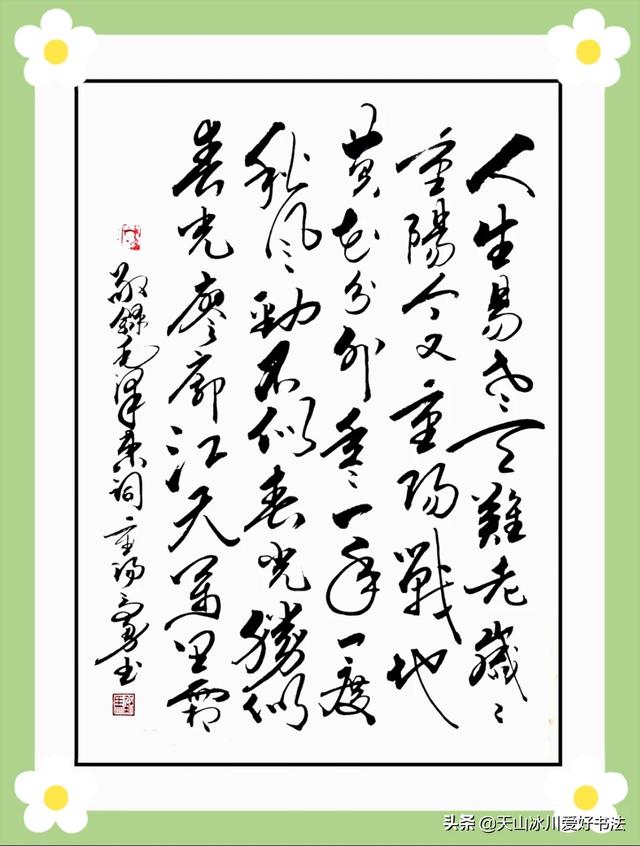 人生易老天難老歲〻
重陽今又重陽戰地
黄花分外香一年一度
秋风勁不似春光勝似
春光廖廓江天萬里霜
敬錄毛澤東詞重陽勇书
头条 @天山冰川爱好书法